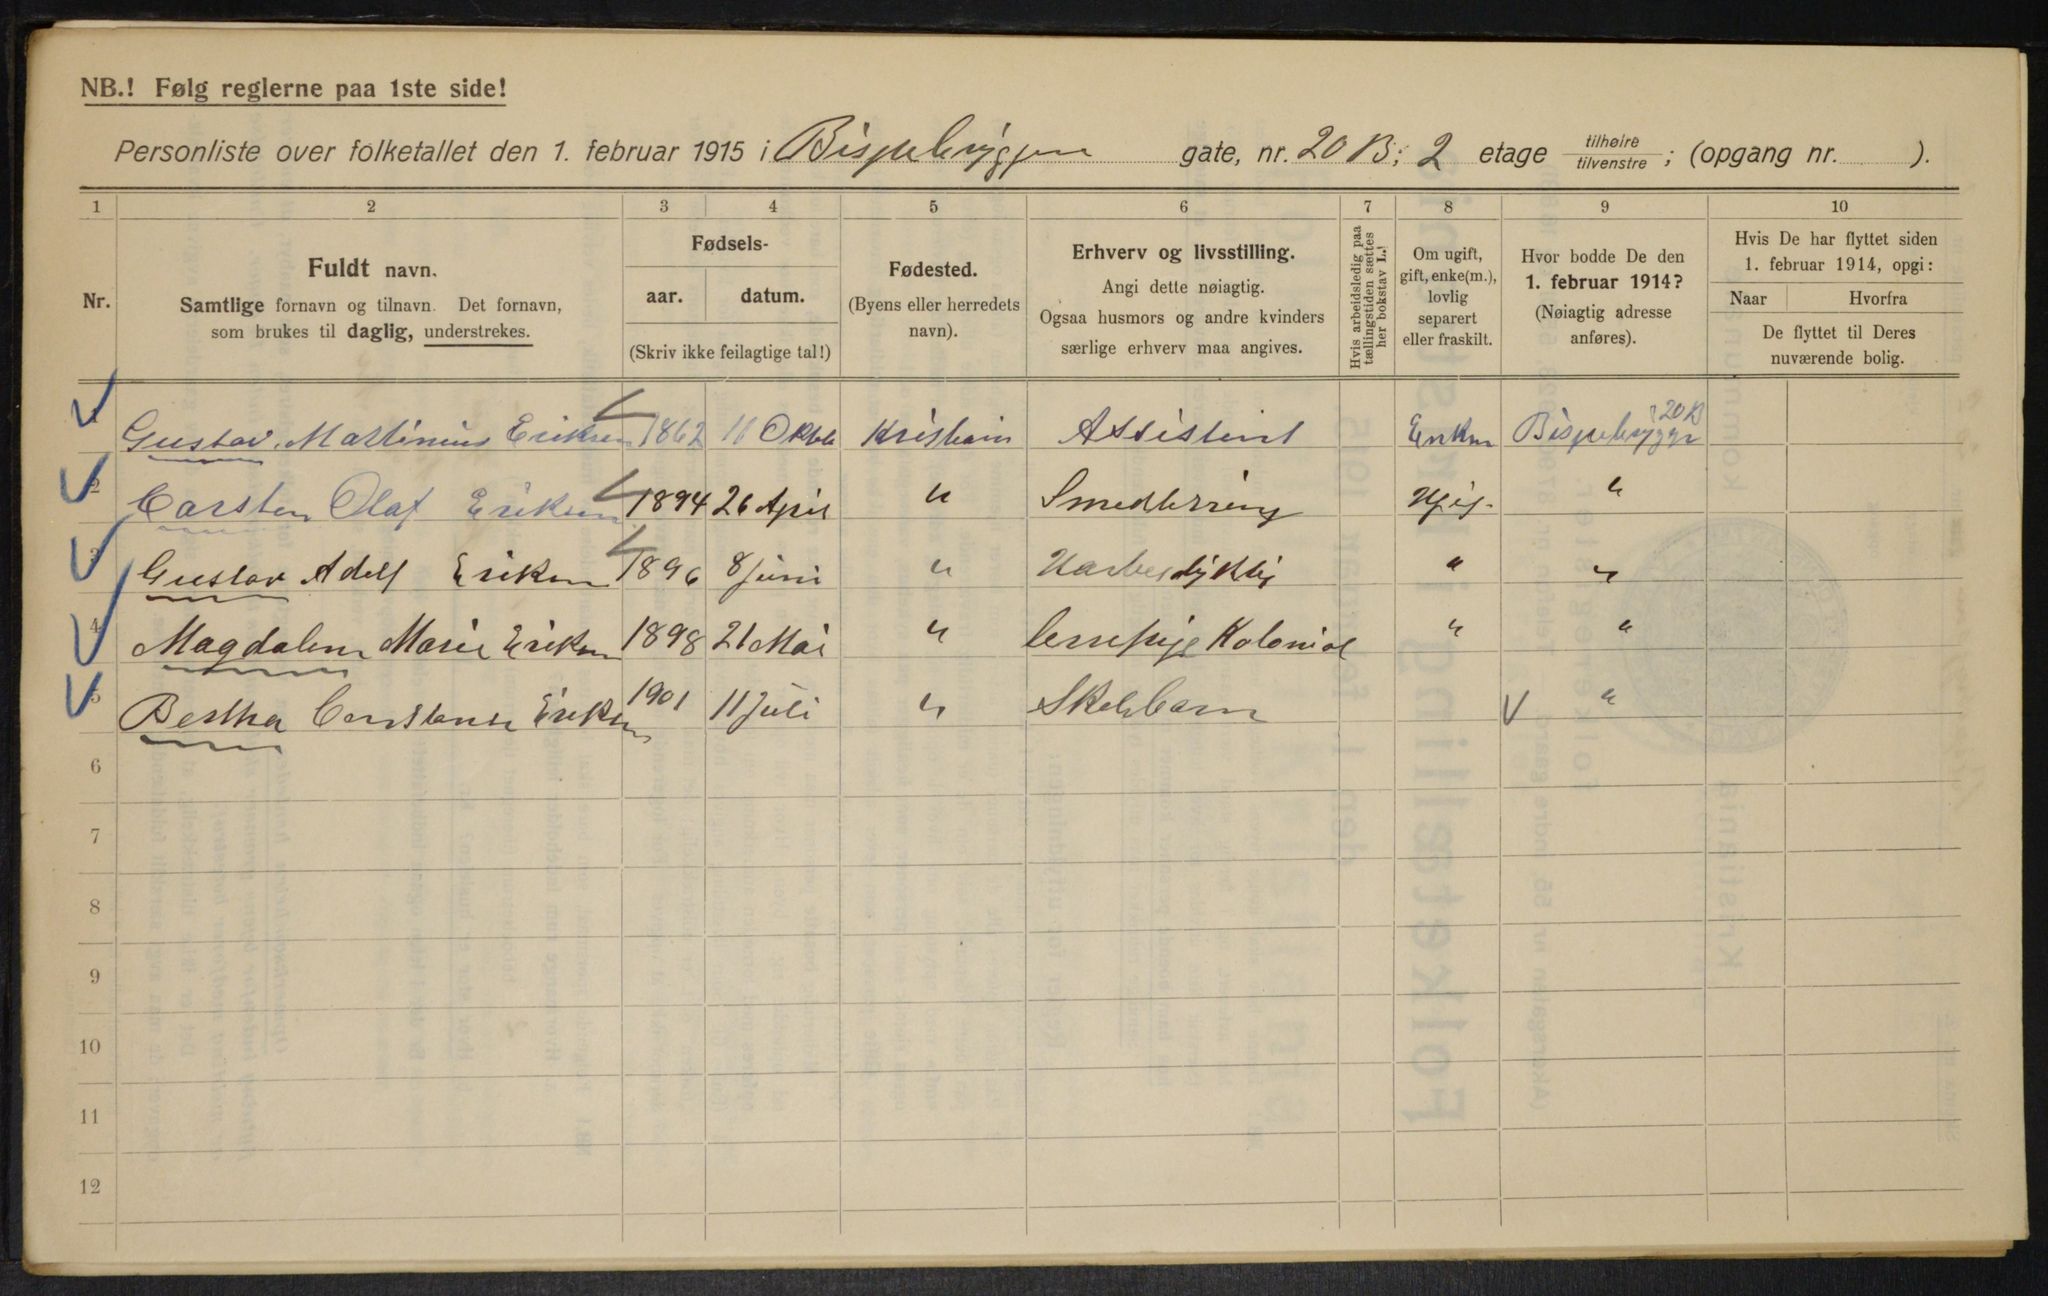 NB.! Følg reglerne paa 1ste side!
Personliste over folketallet den 1. februar 1915 i Bispebryggen gate, nr. 20 B; 2 etage tilhøire/tilvenstre; (opgang nr. ).
1 2 3 4 5 6 7 8 9 10
Nr.
Fuldt navn.
Samtlige fornavn og tilnavn. Det fornavn,
som brukes til daglig, understrekes.
Fødsels-
aar. datum.
(Skriv ikke feilagtige tal!)
Fødested.
(Byens eller herredets
navn).
Erhverv og livsstilling.
Angi dette nøiagtig.
Ogsaa husmors og andre kvinders
særlige erhverv maa angives.
Hvis arbeidsledig paa
tællingstiden sættes
her bokstav L.!
Om ugift,
gift, enke(m.),
lovlig
separert
eller fraskilt.
Hvor bodde De den
1. februar 1914?
(Nøiagtig adresse
anføres).
Hvis De har flyttet siden
1. februar 1914, opgi:
Naar Hvorfra
De flyttet til Deres
nuværende bolig.
1 Gustav Martinius Eriksen 1862 11 Oktb Kristiania Assistent Enkem Bispebrygge 20 B
2 Carsten Olaf Eriksen 1894 26 April " Smedlerring Ugif. "
3 Gustav Adolf Eriksen 1896 8 juni " Uarbeidyktig " "
4 Magdalene Marie Eriksen 1898 21 Mai " Kolonial " "
5 Bertha Constanse Eriksen 1901 11 juli " Skolebarn "
6
7
8
9
10
11
12